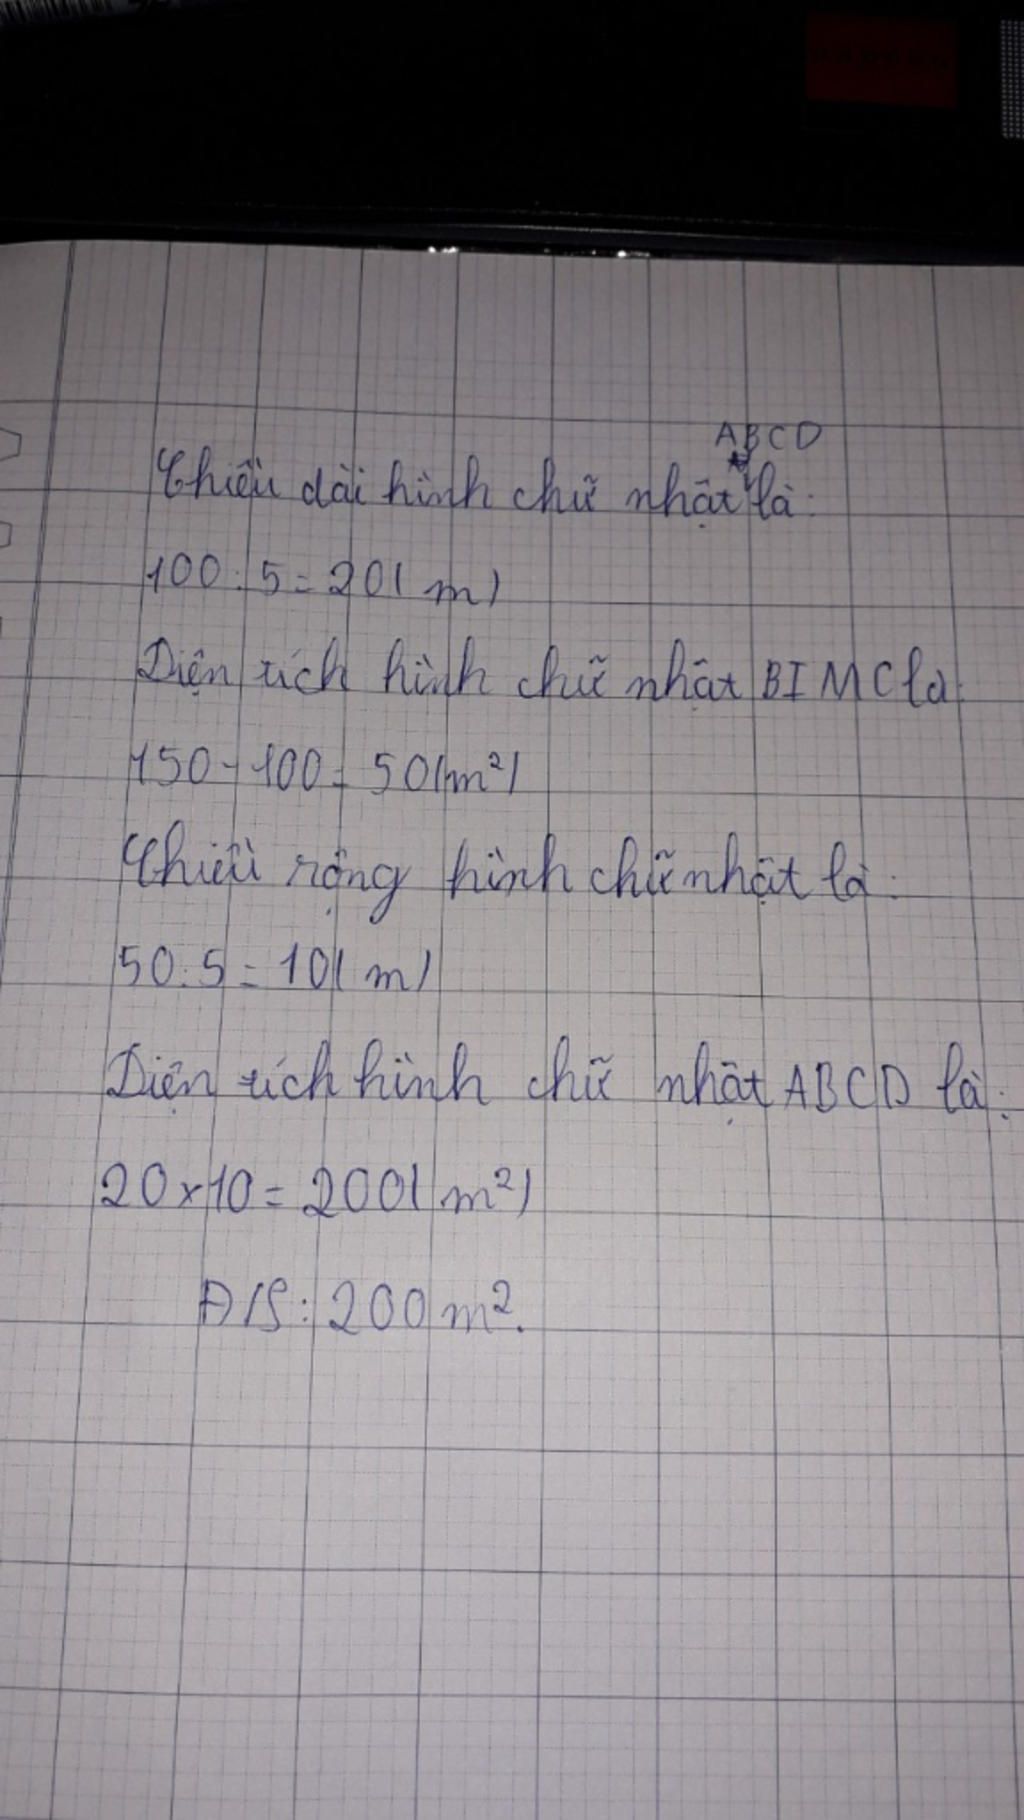 ABCD
Chiều dài hình chữ nhật là:
100 : 5 = 20( m)
Diện tích hình chữ nhật BIMC là
150 - 100 = 50(m²)
Chiều rộng hình chữ nhật là:
50 : 5 = 10( m)
Diện tích hình chữ nhật ABCD là:
20 x 10 = 200( m²)
Đ/S : 200 m².